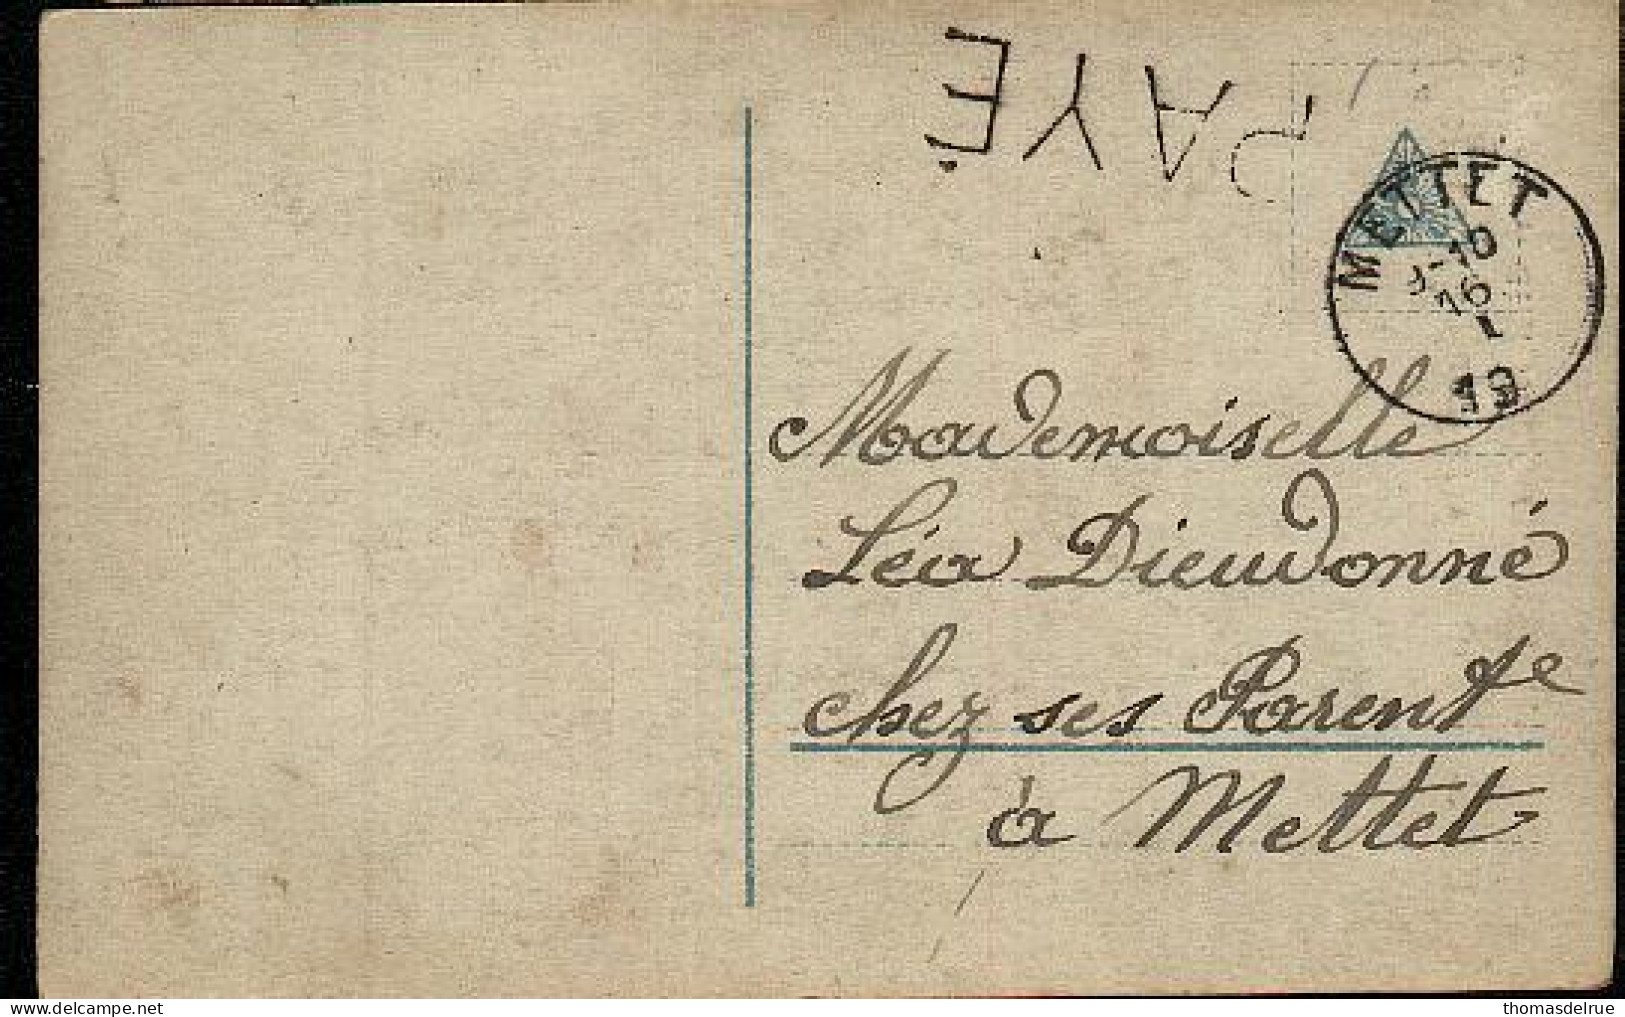 PAYÉ
METTET
9-10
16
I
19
Mademoiselle
Léa Dieudonné
chez ses Parents
à Mettet
delcampe.net
thomasdelrue